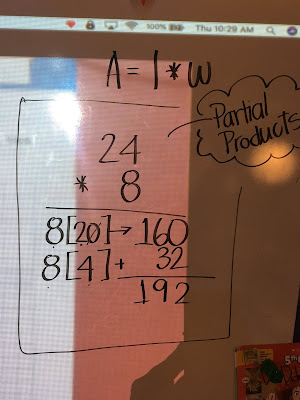 100% Thu 10:29 AM
A = l * w
Partial
Products
24
* 8
8[20] → 160
8[4] + 32
192
5th